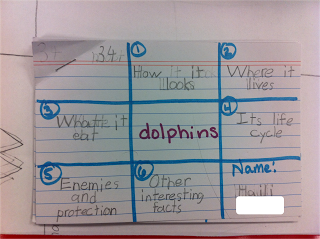 1
How it
looks
2
Where it
lives
3
What it
eat
dolphins
4
Its life
cycle
5
Enemies
and
protection
6
Other
interesting
facts
Name:
Haili